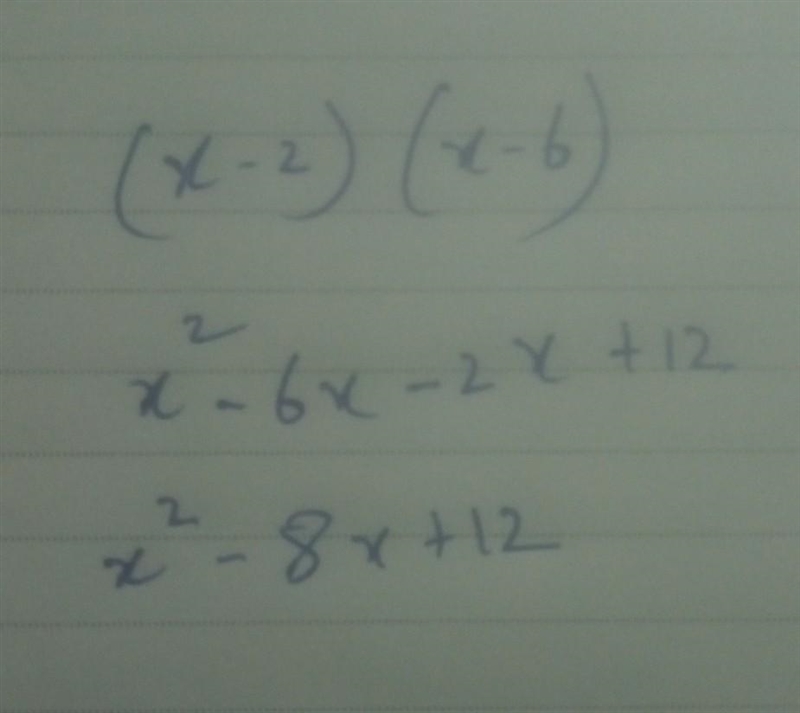 (x-2) (x-6)
x² - 6x - 2x + 12
x² - 8x + 12